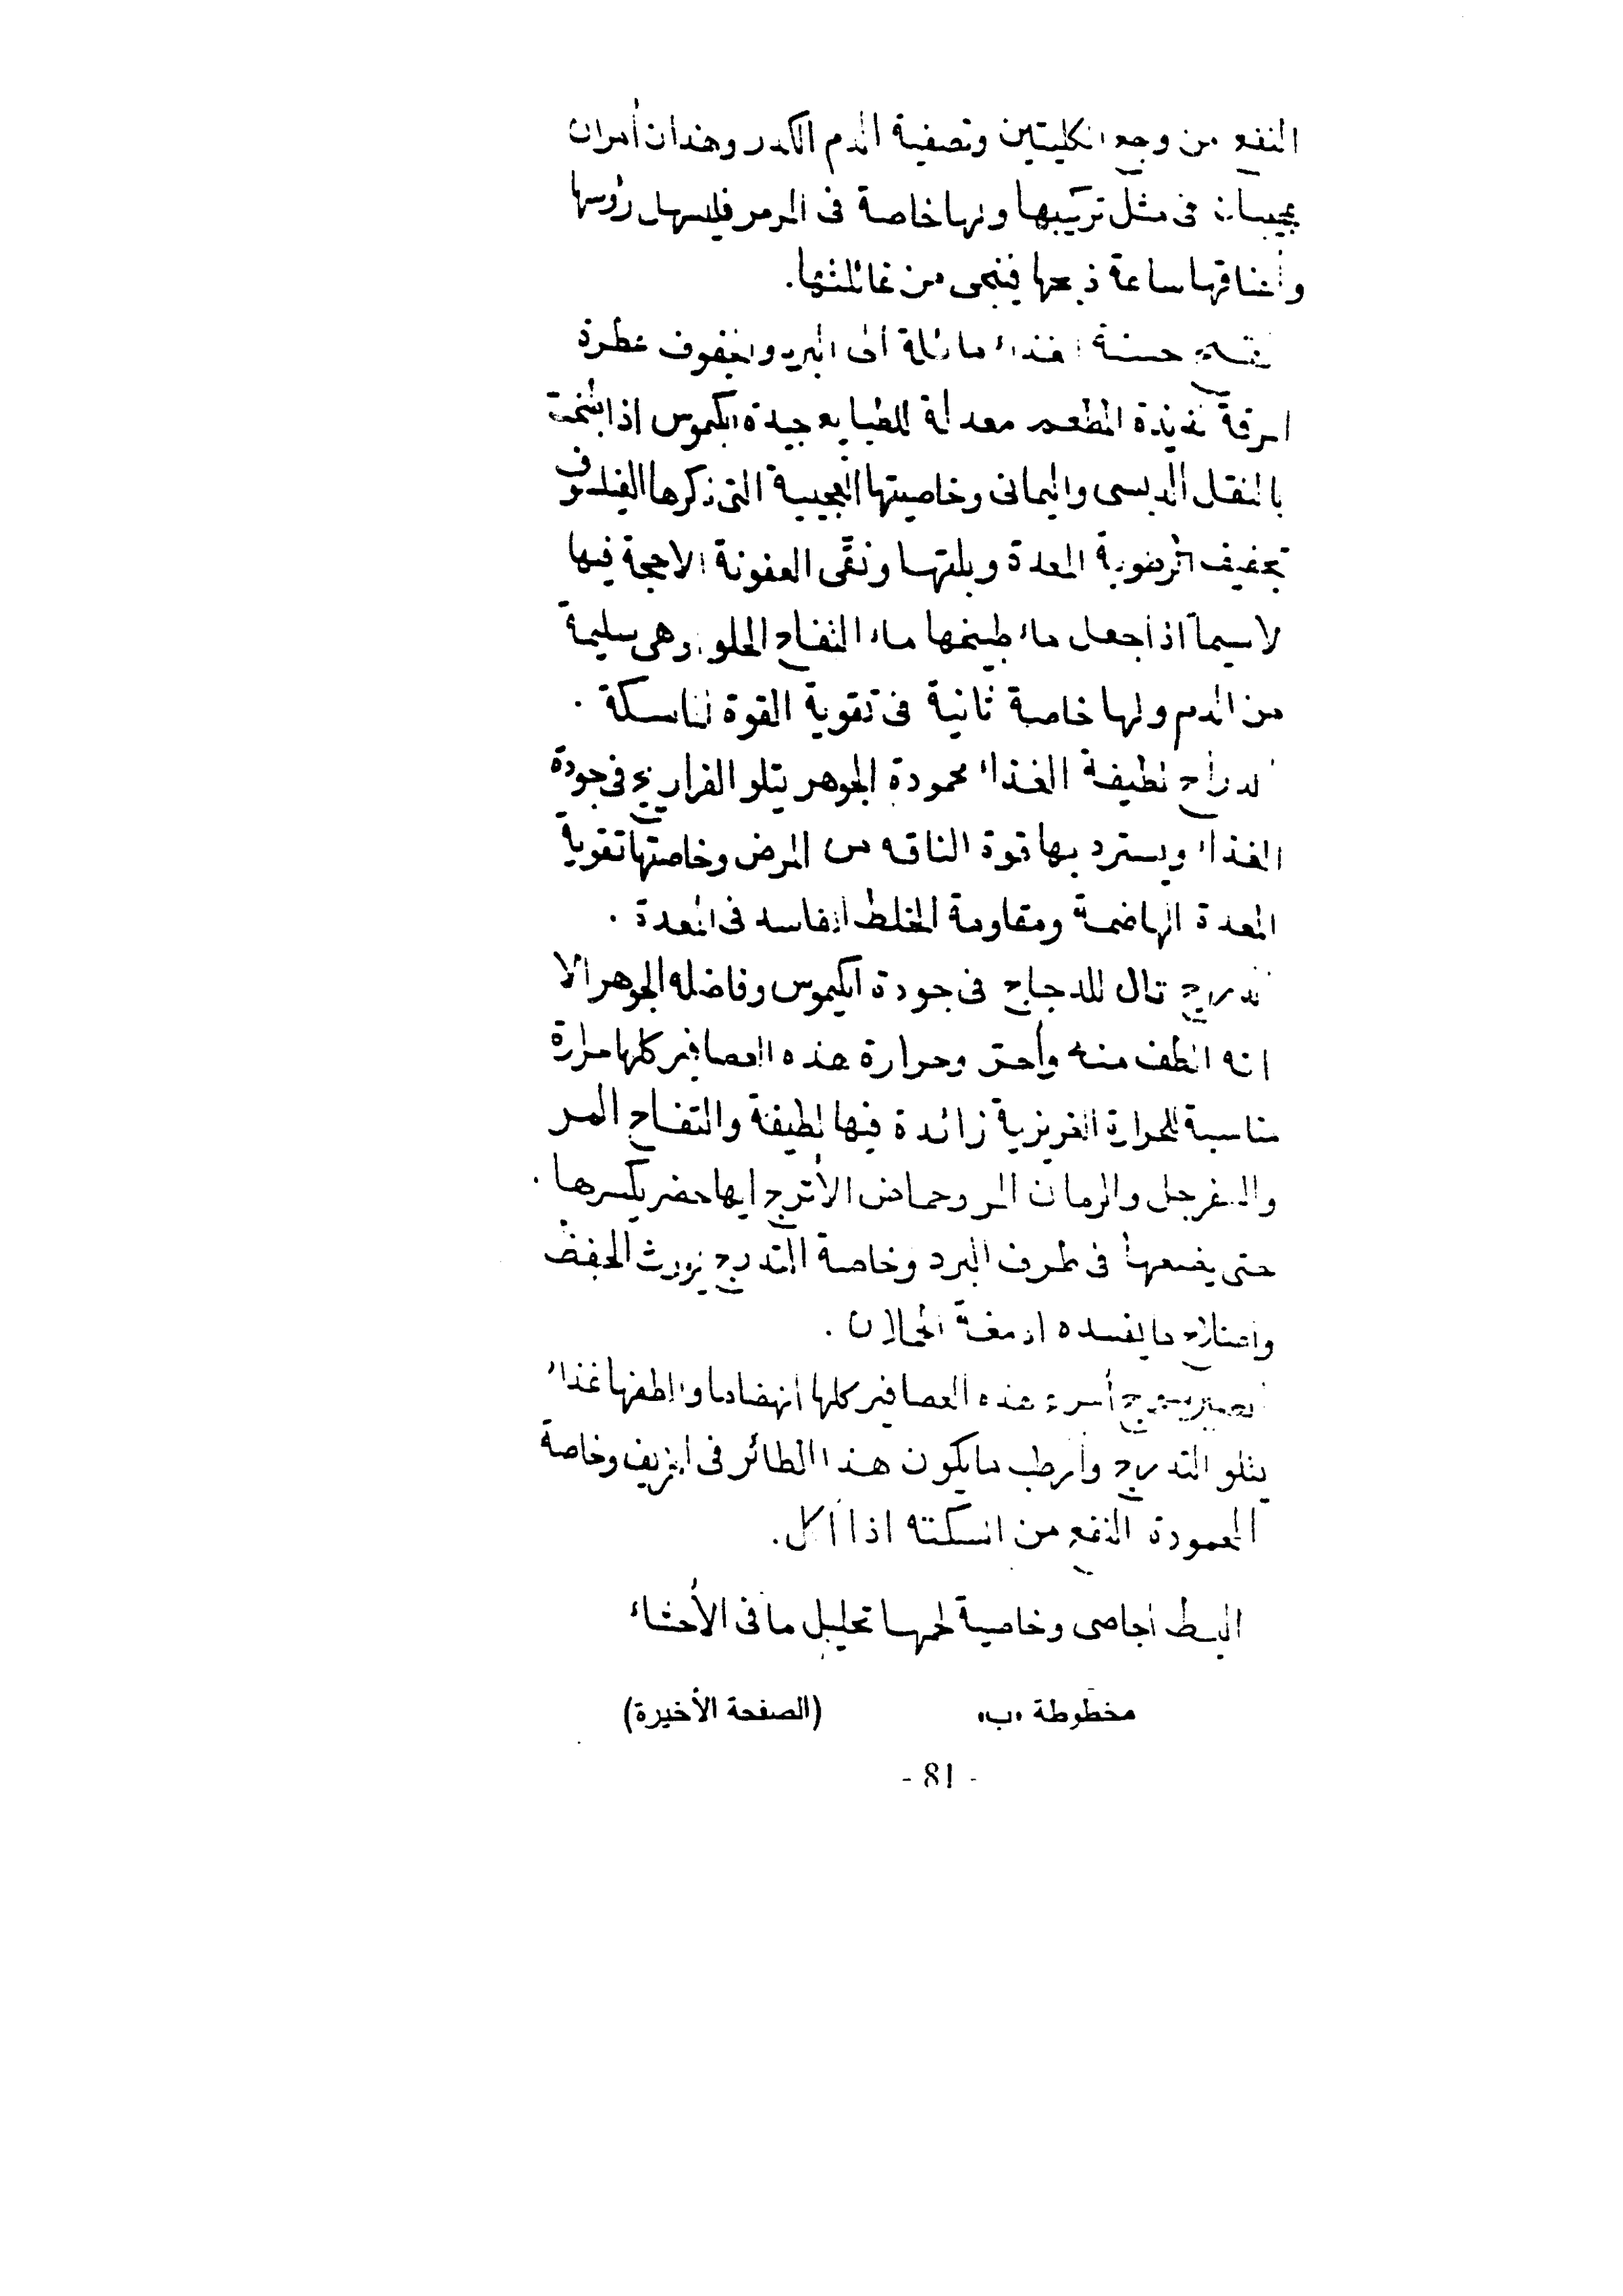 النفع من وجع الكليتين وتصفية الدم الكدر وهذان أمران
عجيبان فى مثل تركيبها ولها خاصة فى المرمر فليسهل رؤسها
وأعناقها ساعة ذبحها فينجى من غائلتها.
حسنة الغذاء مائلة الى البرد والجفوف عطرة
المرقة لذيذة المطعم معدلة للطبايع جيدة الكيموس اذا طبخت
بالنقل الدبسى واليمانى وخاصيتها العجيبة التى ذكرها الفيلسوف
تجفيف الرطوبة المعدة وبلتها ونقى العفونة الاحجة فيها
لاسيما اذا جعل ماء طبيخها ماء التفاح الحلو وهى سليمة
من الدم ولها خاصة ثانية فى تقوية القوة الماسكة .
الدراج لطيفة الغذاء محمودة الجوهر يتلو الفراريج فى جودة
الغذاء ويسترد بها قوة الناقه من المرض وخاصتها تقوية
المعدة الهاضمة ومقاومة الخلط الفاسد فى المعدة .
التدرج تال للدجاج فى جودة الكيموس وفاضله الجوهر الا
انه الطف منه وأحر وحرارة هذه العصافير كلها حرارة
مناسبة للحرارة الغريزية زائدة فيها لطيفة والتفاح المر
والسفرجل والرمان المر وحماض الأترج ايها حضر يكسرها .
حتى يضعها فى طرف البرد وخاصة التدرج يورث الحفظ
واصلاح ما يفسده ادمغة الحملان .
أسرع هذه العصافير كلها انهضاما والطفها غذاء
يتلو التدرج وأرطب ما يكون هذا الطائر فى الخريف وخاصة
المحمودة النفع من السكتة اذا أكل.
البط اجاصى وخاصية لحمها تحليل ما فى الأحشاء
مخطوطة «ب» (الصفحة الأخيرة)
- 81 -